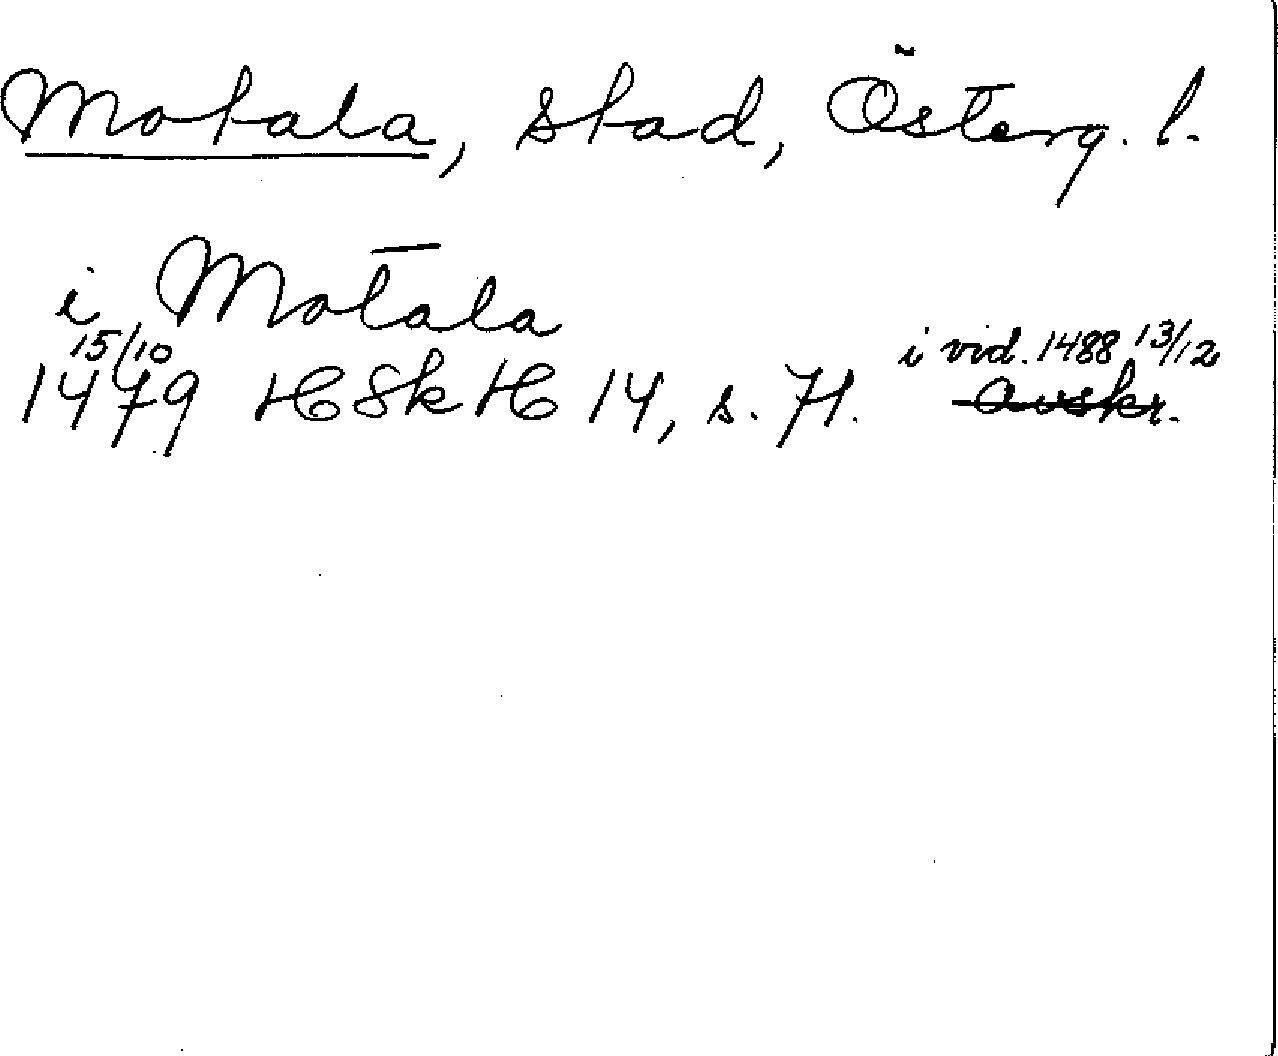 Motala, stad, Österg. l.
i Motala
15/10 i vid. 1488 13/12
1479 HSkH 14, s. 71. avskr.